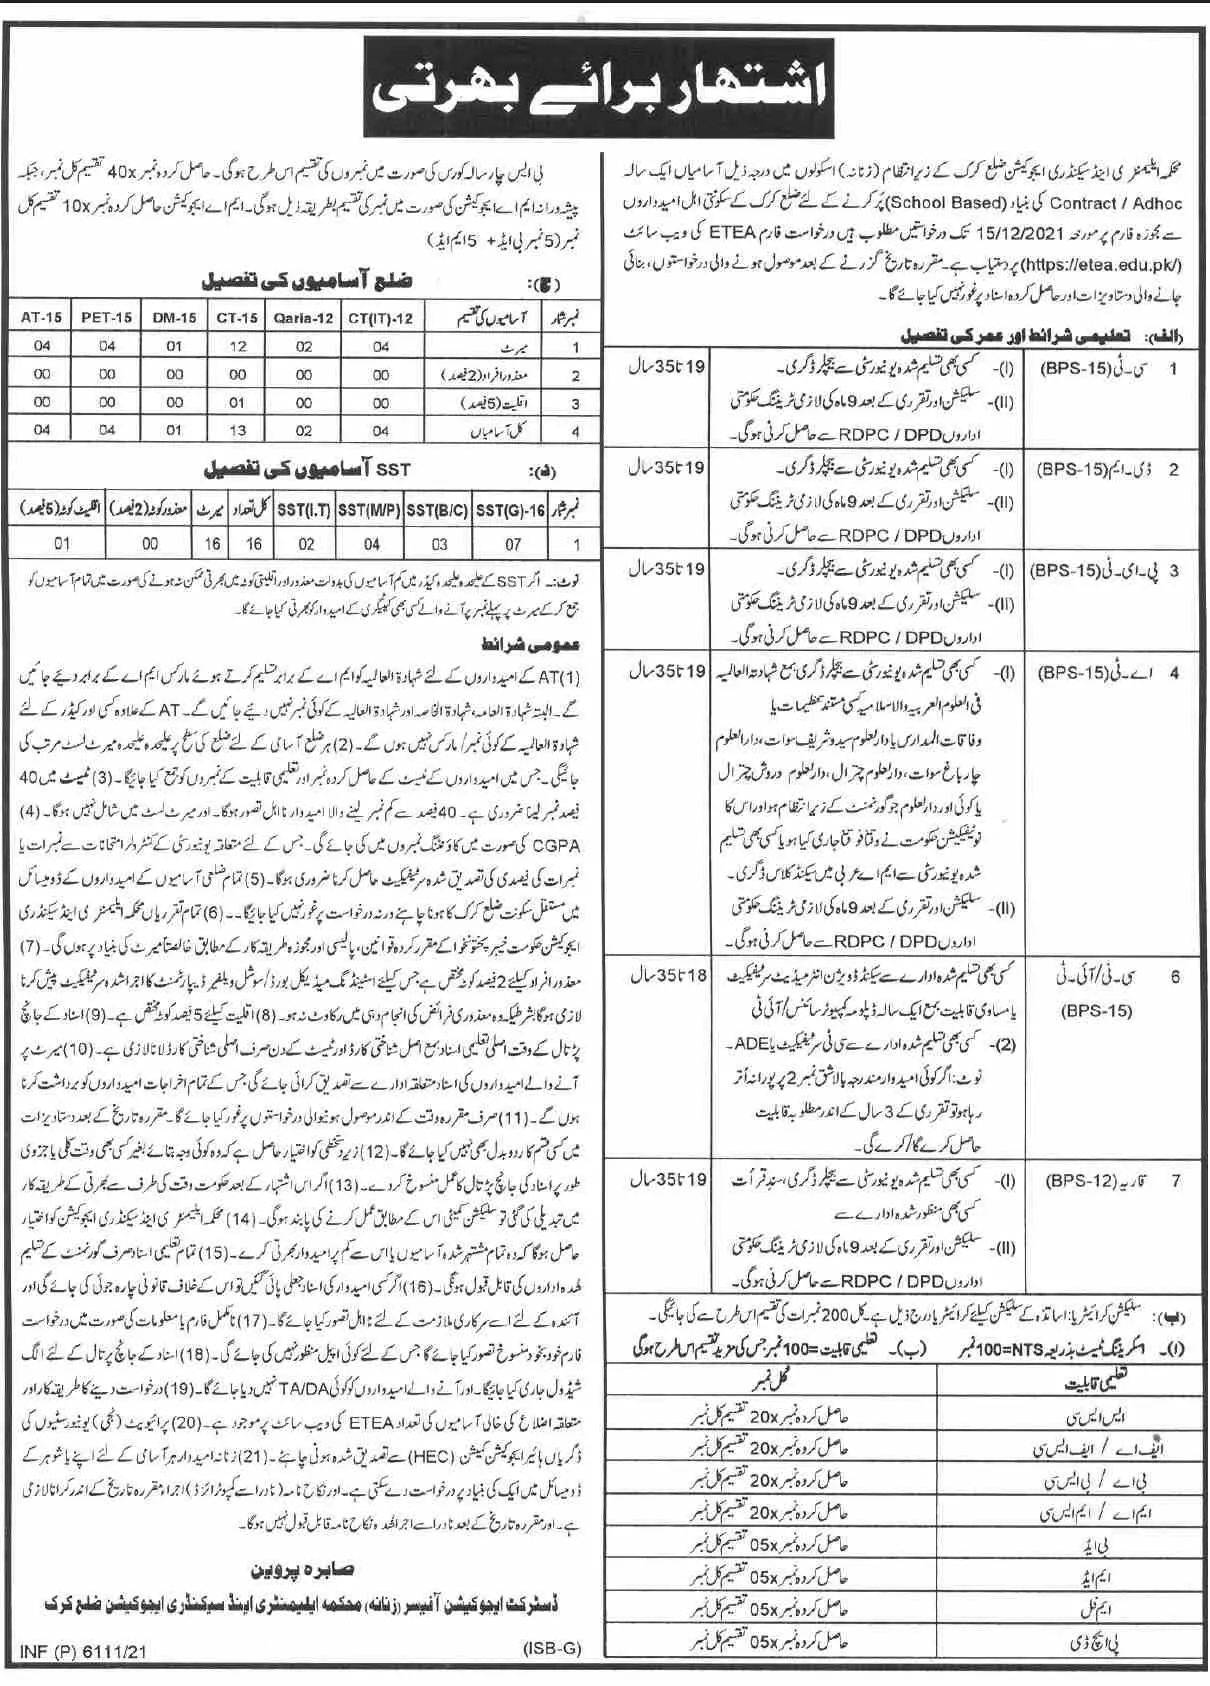 اشتہار برائے بھرتی
محکمہ ایلیمنٹری اینڈ سیکنڈری ایجوکیشن ضلع کرک کے زیر انتظام (زنانہ) اسکولوں میں درجہ ذیل آسامیاں ایک سالہ
Contract / Adhoc کی بنیاد (School Based) پُر کرنے کے لئے ضلع کرک کے سکونتی اہل امیدواروں
سے مجوزہ فارم پر مورخہ 15/12/2021 تک درخواستیں مطلوب ہیں درخواست فارم ETEA کی ویب سائٹ
(https://etea.edu.pk/) پر دستیاب ہے۔ مقررہ تاریخ گزرنے کے بعد موصول ہونے والی درخواستوں، بنائی
جانے والی دستاویزات اور حاصل کردہ اسناد پر غور نہیں کیا جائے گا۔
(الف): تعلیمی شرائط اور عمر کی تفصیل
1 سی۔ٹی (BPS-15) (I)- کسی بھی تسلیم شدہ یونیورسٹی سے بیچلر ڈگری۔ 19 تا 35 سال
(II)- سلیکشن اور تقرری کے بعد 9 ماہ کی لازمی ٹریننگ حکومتی
اداروں RDPC / DPD سے حاصل کرنی ہوگی۔
2 ڈی۔ایم (BPS-15) (I)- کسی بھی تسلیم شدہ یونیورسٹی سے بیچلر ڈگری۔ 19 تا 35 سال
(II)- سلیکشن اور تقرری کے بعد 9 ماہ کی لازمی ٹریننگ حکومتی
اداروں RDPC / DPD سے حاصل کرنی ہوگی۔
3 پی۔ای۔ٹی (BPS-15) (I)- کسی بھی تسلیم شدہ یونیورسٹی سے بیچلر ڈگری۔ 19 تا 35 سال
(II)- سلیکشن اور تقرری کے بعد 9 ماہ کی لازمی ٹریننگ حکومتی
اداروں RDPC / DPD سے حاصل کرنی ہوگی۔
4 اے۔ٹی (BPS-15) (I)- کسی بھی تسلیم شدہ یونیورسٹی سے بیچلر ڈگری بمع شہادۃ العالمیہ 19 تا 35 سال
فی العلوم العربیہ والاسلامیہ کسی مستند تنظیمات یا
وفاقات المدارس یا دارلعلوم سیدو شریف سوات، دارالعلوم
چار باغ سوات، دارلعلوم چترال، دارلعلوم دروش چترال
یا کوئی اور دارلعلوم جو گورنمنٹ کے زیر انتظام ہو اور اس کا
نوٹیفکیشن حکومت نے وقتاً فوقتاً جاری کیا ہو یا کسی بھی تسلیم
شدہ یونیورسٹی سے ایم اے عربی میں سیکنڈ کلاس ڈگری۔
(II)- سلیکشن اور تقرری کے بعد 9 ماہ کی لازمی ٹریننگ حکومتی
اداروں RDPC / DPD سے حاصل کرنی ہوگی۔
6 سی۔ٹی/آئی۔ٹی کسی بھی تسلیم شدہ ادارے سے سیکنڈ ڈویژن انٹرمیڈیٹ سرٹیفکیٹ 18 تا 35 سال
(BPS-15) یا مساوی قابلیت بمع ایک سالہ ڈپلومہ کمپیوٹر سائنس/آئی ٹی
(2)- کسی بھی تسلیم شدہ ادارے سے سی ٹی سرٹیفکیٹ یا ADE۔
نوٹ: اگر کوئی امیدوار مندرجہ بالا شق نمبر 2 پر پورا نہ اُتر
رہا ہو تو تقرری کے 3 سال کے اندر مطلوبہ قابلیت
حاصل کرے گا/کرے گی۔
7 قاریہ (BPS-12) (I)- کسی بھی تسلیم شدہ یونیورسٹی سے بیچلر ڈگری، سند قرأت 19 تا 35 سال
کسی بھی منظور شدہ ادارے سے
(II)- سلیکشن اور تقرری کے بعد 9 ماہ کی لازمی ٹریننگ حکومتی
اداروں RDPC / DPD سے حاصل کرنی ہوگی۔
(ب): سلیکشن کرائیٹریا: اساتذہ کے سلیکشن کیلئے کرائیٹیریا درج ذیل ہے۔ کل 200 نمبرات کی تقسیم اس طرح سے کی جائیگی۔
(I)۔ سکریننگ ٹیسٹ بذریعہ NTS=100 نمبر (ب)۔ تعلیمی قابلیت=100 نمبر جس کی مزید تقسیم اس طرح ہوگی
تعلیمی قابلیت کل نمبر
ایس ایس سی حاصل کردہ نمبر 20x تقسیم کل نمبر
ایف اے / ایف ایس سی حاصل کردہ نمبر 20x تقسیم کل نمبر
بی اے / بی ایس سی حاصل کردہ نمبر 20x تقسیم کل نمبر
ایم اے / ایم ایس سی حاصل کردہ نمبر 20x تقسیم کل نمبر
بی ایڈ حاصل کردہ نمبر 05x تقسیم کل نمبر
ایم ایڈ حاصل کردہ نمبر 05x تقسیم کل نمبر
ایم فل حاصل کردہ نمبر 05x تقسیم کل نمبر
پی ایچ ڈی حاصل کردہ نمبر 05x تقسیم کل نمبر
بی ایس چار سالہ کورس کی صورت میں نمبروں کی تقسیم اس طرح ہوگی۔ حاصل کردہ نمبر 40x تقسیم کل نمبر، جبکہ
پیشہ ورانہ ایم اے ایجوکیشن کی صورت میں نمبر کی تقسیم بطریقہ ذیل ہوگی۔ ایم اے ایجوکیشن حاصل کردہ نمبر 10x تقسیم کل
نمبر (5 نمبر بی ایڈ + 5 ایم ایڈ)
(ج): ضلع آسامیوں کی تفصیل
نمبر شمار آسامیوں کی تقسیم CT(IT)-12 Qaria-12 CT-15 DM-15 PET-15 AT-15
1 میرٹ 04 02 12 01 04 04
2 معذور افراد (2 فیصد) 00 00 00 00 00 00
3 اقلیت (5 فیصد) 00 00 01 00 00 00
4 کل آسامیاں 04 02 13 01 04 04
(د): SST آسامیوں کی تفصیل
نمبر شمار SST(G)-16 SST(B/C) SST(M/P) SST(I.T) کل تعداد میرٹ معذور کوٹہ (2 فیصد) اقلیت کوٹہ (5 فیصد)
1 07 03 04 02 16 16 00 01
نوٹ:۔ اگر SST کے علیحدہ علیحدہ کیڈر میں کم آسامیوں کی بدولت معذور اور اقلیتی کوٹہ میں بھرتی ممکن نہ ہونے کی صورت میں تمام آسامیوں کو
جمع کر کے میرٹ پر پہلے نمبر پر آنے والے کسی بھی کیٹیگری کے امیدوار کو بھرتی کیا جائے گا۔
عمومی شرائط
(1) AT کے امیدواروں کے لئے شہادۃ العالمیہ کو ایم اے کے برابر تسلیم کرتے ہوئے مارکس ایم اے کے برابر دیئے جائیں
گے۔ البتہ شہادۃ العامہ، شہادۃ الخاصہ اور شہادۃ العالیہ کے کوئی نمبر نہیں دیئے جائیں گے۔ AT کے علاوہ کسی اور کیڈر کے لئے
شہادۃ العالمیہ کے کوئی نمبر/مارکس نہیں ہوں گے۔ (2) ہر ضلع آسامی کے لئے ضلع کی سطح پر علیحدہ علیحدہ میرٹ لسٹ مرتب کی
جائیگی۔ جس میں امیدواروں کے ٹیسٹ کے حاصل کردہ نمبر اور تعلیمی قابلیت کے نمبروں کو جمع کیا جائیگا۔ (3) ٹیسٹ میں 40
فیصد نمبر لینا ضروری ہے۔ 40 فیصد سے کم نمبر لینے والا امیدوار نا اہل تصور ہوگا۔ اور میرٹ لسٹ میں شامل نہیں ہوگا۔ (4)
CGPA کی صورت میں کاؤنٹنگ نمبروں میں کی جائے گی۔ جس کے لئے متعلقہ یونیورسٹی کے کنٹرولر امتحانات سے نمبرات یا
نمبرات کی فیصدی کی تصدیق شدہ سرٹیفکیٹ حاصل کرنا ضروری ہوگا۔ (5) تمام ضلعی آسامیوں کے امیدواروں کے ڈومیسائل
میں مستقل سکونت ضلع کرک کا ہونا چاہئے ورنہ درخواست پر غور نہیں کیا جائیگا۔ (6) تمام تقرریاں محکمہ ایلیمنٹری اینڈ سیکنڈری
ایجوکیشن حکومت خیبر پختونخوا کے مقرر کردہ قوانین، پالیسی اور مجوزہ طریقہ کار کے مطابق خالصتاً میرٹ کی بنیاد پر ہوں گی۔ (7)
معذور افراد کیلئے 2 فیصد کوٹہ مختص ہے جس کیلئے اسٹینڈنگ میڈیکل بورڈ/سوشل ویلفیئر ڈیپارٹمنٹ کا اجرا شدہ سرٹیفکیٹ پیش کرنا
لازمی ہوگا بشرطیکہ وہ معذوری فرائض کی انجام دہی میں رکاوٹ نہ ہو۔ (8) اقلیت کیلئے 5 فیصد کوٹہ مختص ہے۔ (9) اسناد کے جانچ
پڑتال کے وقت اصلی تعلیمی اسناد بمع اصل شناختی کارڈ اور ٹیسٹ کے دن صرف اصلی شناختی کارڈ لانا لازمی ہے۔ (10) میرٹ پر
آنے والے امیدواروں کی اسناد متعلقہ ادارے سے تصدیق کرائی جائے گی جس کے تمام اخراجات امیدواروں کو برداشت کرنا
ہوں گے۔ (11) صرف مقررہ وقت کے اندر موصول ہونیوالی درخواستوں پر غور کیا جائے گا۔ مقررہ تاریخ کے بعد دستاویزات
میں کسی قسم کا ردوبدل بھی نہیں کیا جائے گا۔ (12) زیر دستخطی کو اختیار حاصل ہے کہ وہ کوئی وجہ بتائے بغیر کسی بھی وقت کلی یا جزوی
طور پر اسناد کی جانچ پڑتال کا عمل منسوخ کر دے۔ (13) اگر اس اشتہار کے بعد حکومت وقت کی طرف سے بھرتی کے طریقہ کار
میں تبدیلی کی گئی تو سلیکشن کمیٹی اس کے مطابق عمل کرنے کی پابند ہوگی۔ (14) محکمہ ایلیمنٹری اینڈ سیکنڈری ایجوکیشن کو اختیار
حاصل ہوگا کہ وہ تمام مشتہر شدہ آسامیوں یا اس سے کم پر امیدوار بھرتی کرے۔ (15) تمام تعلیمی اسناد صرف گورنمنٹ کے تسلیم
شدہ اداروں کی قابل قبول ہونگی۔ (16) اگر کسی امیدوار کی اسناد جعلی پائی گئیں تو اس کے خلاف قانونی چارہ جوئی کی جائے گی اور
آئندہ کے لئے اسے سرکاری ملازمت کے لئے نا اہل تصور کیا جائے گا۔ (17) نامکمل فارم یا معلومات کی صورت میں درخواست
فارم خود بخود منسوخ تصور کیا جائے گا جس کے لئے کوئی اپیل منظور نہیں کی جائے گی۔ (18) اسناد کے جانچ پڑتال کے لئے الگ
شیڈول جاری کیا جائیگا۔ اور آنے والے امیدواروں کو کوئی TA/DA نہیں دیا جائے گا۔ (19) درخواست دینے کا طریقہ کار اور
متعلقہ اضلاع کی خالی آسامیوں کی تعداد ETEA کی ویب سائٹ پر موجود ہے۔ (20) پرائیویٹ (نجی) یونیورسٹیوں کی
ڈگریاں ہائیر ایجوکیشن کمیشن (HEC) سے تصدیق شدہ ہونی چاہئے۔ (21) زنانہ امیدوار ہر آسامی کے لئے اپنے یا شوہر کے
ڈومیسائل میں ایک کی بنیاد پر درخواست دے سکتی ہے۔ اور نکاح نامہ (نادرا سے کمپیوٹرائزڈ) اجراء مقررہ تاریخ کے اندر کرانا لازمی
ہے۔ اور مقررہ تاریخ کے بعد نادرا سے اجراء شدہ نکاح نامہ قابل قبول نہیں ہوگا۔
صابرہ پروین
ڈسٹرکٹ ایجوکیشن آفیسر (زنانہ) محکمہ ایلیمنٹری اینڈ سیکنڈری ایجوکیشن ضلع کرک
INF (P) 6111/21 (ISB-G)